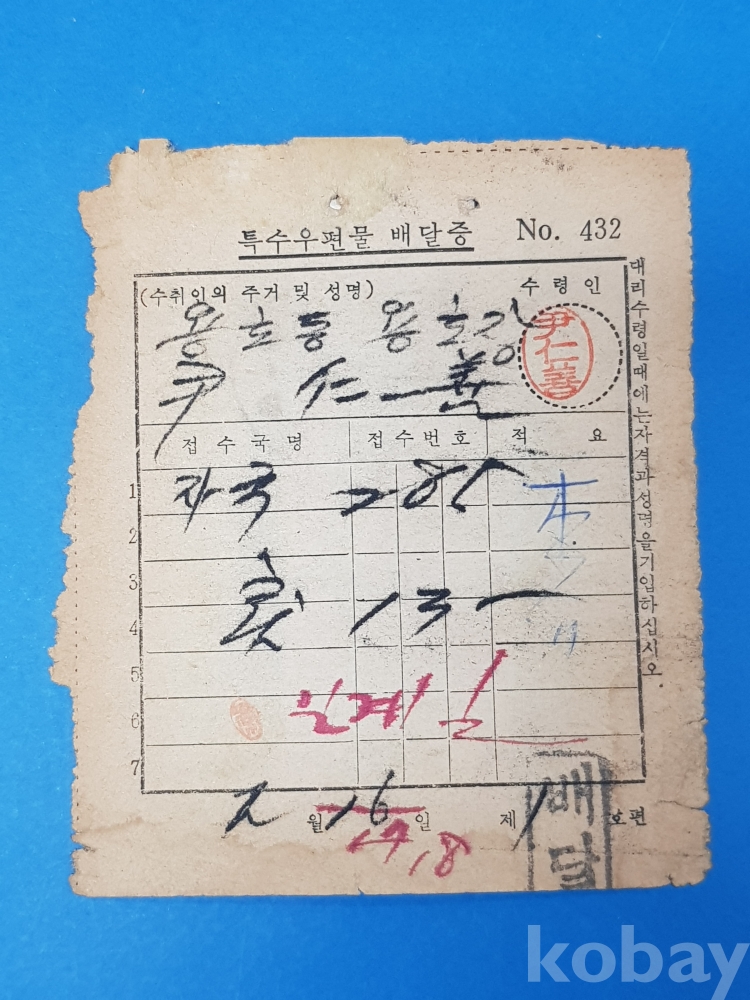 특수우편물 배달증 No. 432
(수취인의 주거 및 성명) 수령인
용호동 용호장
尹仁善
尹 仁 善
접수국명 접수번호 적 요
1 자국 285
2
3
4 135
5
6
7
월 16 일 제 1 호편
18
배달
대리수령일때에는자격과성명을기입하십시오.
kobay